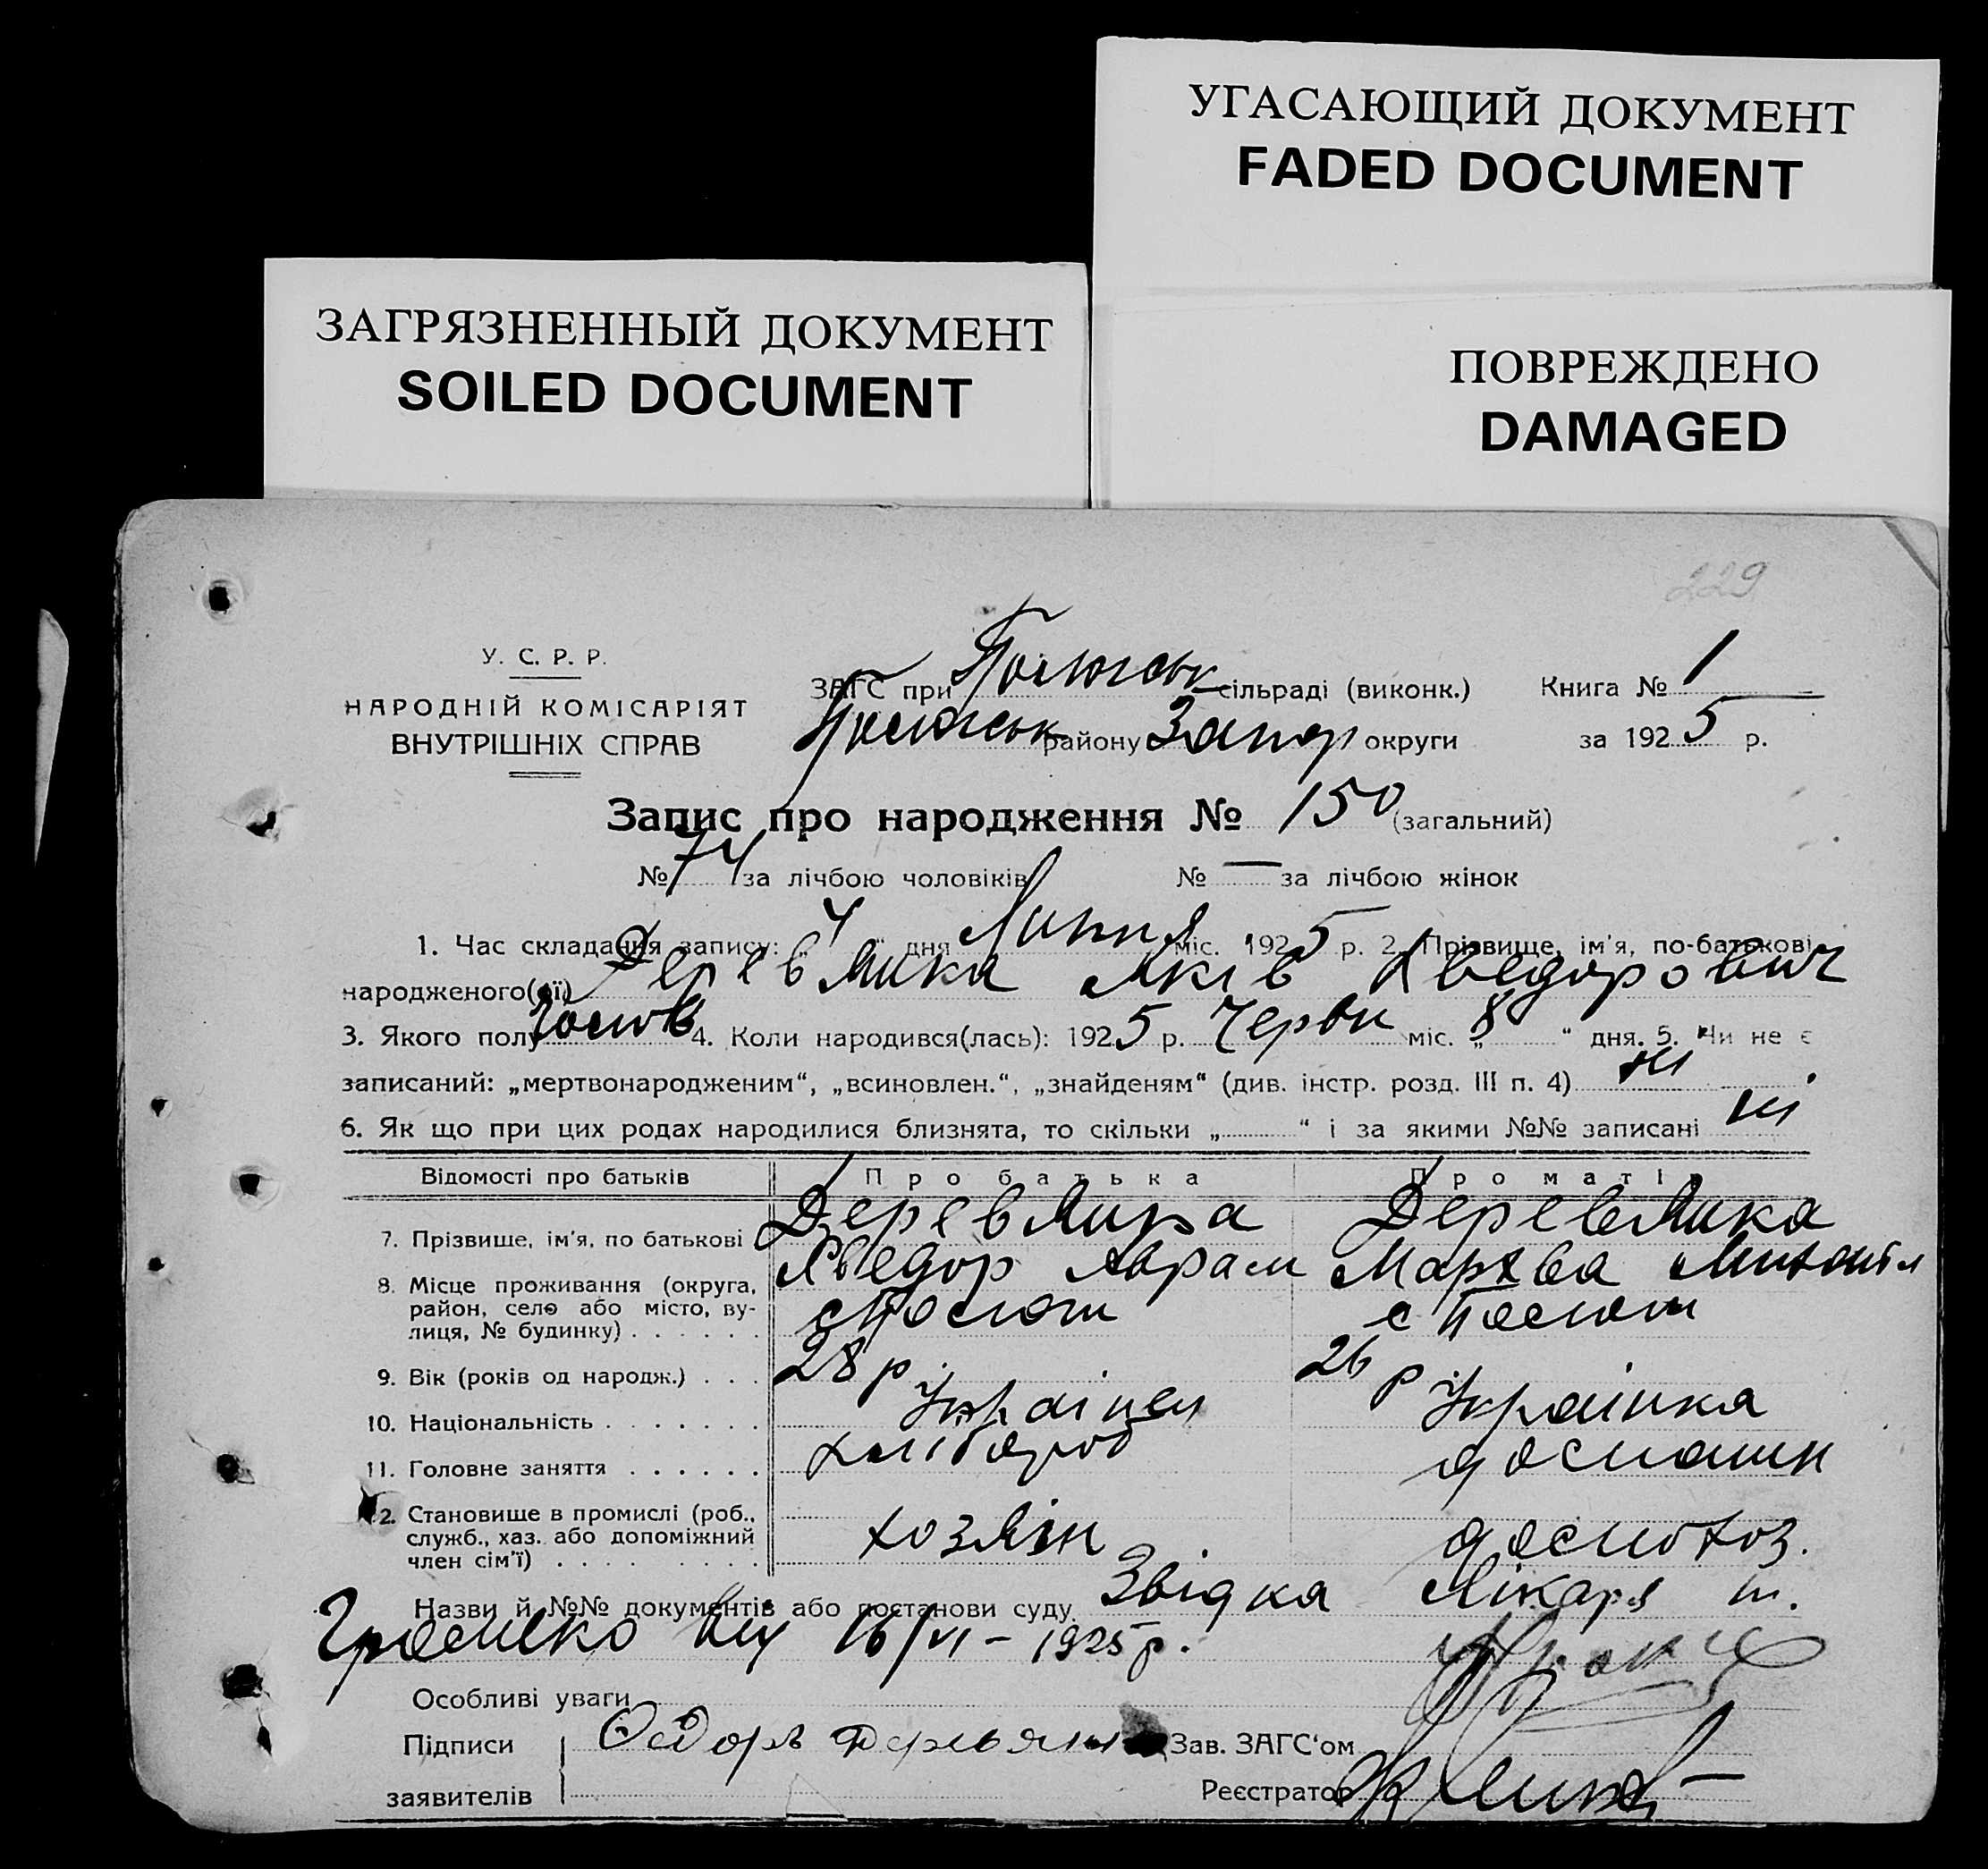 УГАСАЮЩИЙ ДОКУМЕНТ
FADED DOCUMENT
ЗАГРЯЗНЕННЫЙ ДОКУМЕНТ
SOILED DOCUMENT
ПОВРЕЖДЕНО
DAMAGED
229
У. С. Р. Р.
НАРОДНІЙ КОМІСАРІЯТ
ВНУТРІШНІХ СПРАВ
ЗАГС при сільраді (виконк.) Книга № 1
району Запор округи за 1925 р.
Запис про народження № 150 (загальний)
№ 74 за лічбою чоловіків № — за лічбою жінок
1. Час складання запису: „4“ дня Липня міс. 1925 р. 2. Прізвище, ім'я, по-батькові
народженого(ої) Деревянка Яків Хведорович
3. Якого полу 4. Коли народився(лась): 1925 р. Червн міс. „8“ дня. 5. Чи не є
записаний: „мертвонародженим“, „всиновлен.“, „знайденям“ (див. інстр. розд. III п. 4) ні
6. Як що при цих родах народилися близнята, то скільки „ “ і за якими №№ записані ні
Відомості про батьків Про батька Про матір
7. Прізвище, ім'я, по батькові Деревянка Деревянка
Хведор Аврам
8. Місце проживання (округа, район, село або місто, вулиця, № будинку)
9. Вік (років од народж.) 28 р 26 р
10. Національність Українец Українка
11. Головне заняття хлібороб
12. Становище в промислі (роб., служб., хаз. або допоміжний член сім'ї) хозяїн
Назви й №№ документів або постанови суду Звідка Лікаря
від 16/VI – 1925 р.
Особливі уваги
Підписи заявителів
Зав. ЗАГС'ом
Реєстратор